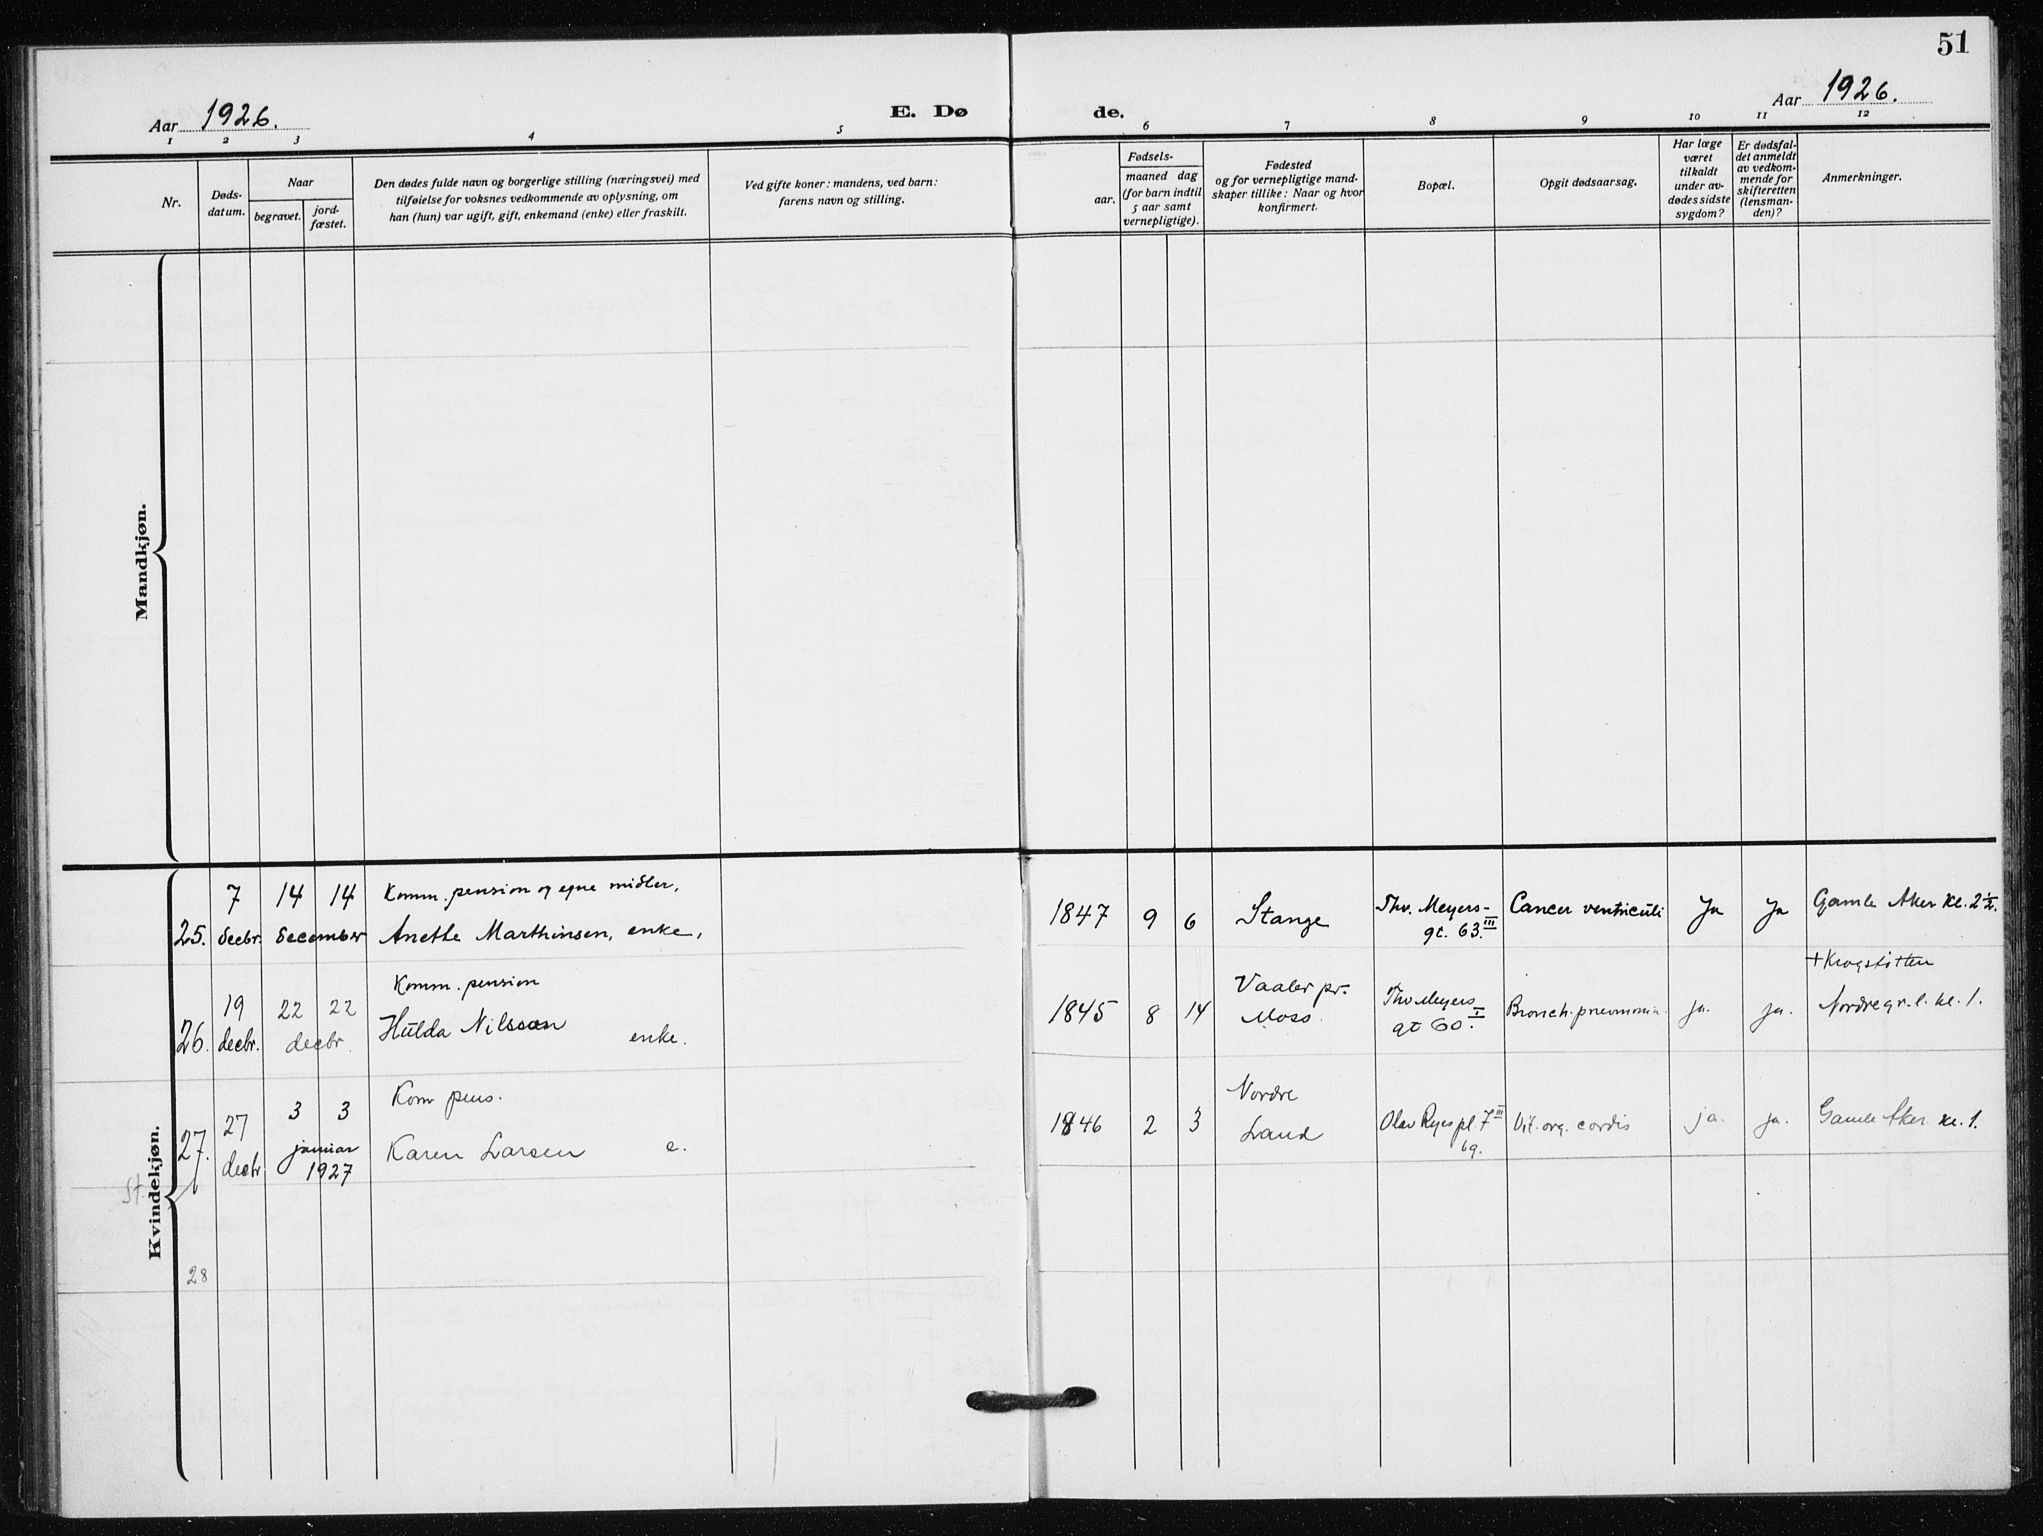 51
Aar 1926.
E. Dø
de.
Aar 1926.
1 2 3 4 5 6 7 8 9 10 11 12
Nr.
Døds-
datum.
Naar
begravet.
jord-
fæstet.
Den dødes fulde navn og borgerlige stilling (næringsvei) med
tilføielse for voksnes vedkommende av oplysning, om
han (hun) var ugift, gift, enkemand (enke) eller fraskilt.
Ved gifte koner: mandens, ved barn:
farens navn og stilling.
Fødsels-
aar.
maaned dag
(for barn indtil
5 aar samt
vernepligtige).
Fødested
og for vernepligtige mand-
skaper tillike: Naar og hvor
konfirmert.
Bopæl.
Opgit dødsaarsag.
Har læge
været
tilkaldt
under av-
dødes sidste
sygdom?
Er dødsfal-
det anmeldt
av vedkom-
mende for
skifteretten
(lensman-
den)?
Anmerkninger.
Mandkjøn.
Kvindekjøn.
25.
7
decbr.
14 14
december
Komm. pension og egne midler,
Anette Marthinsen, enke,
1847 9 6
Stange
Thv. Meyers-
gt. 63.III
Cancer ventriculi
Ja
Ja
Gamle Aker kl. 2½.
26.
19
decbr.
22 22
decbr.
Komm. pension
Hulda Nilsson
enke.
1845 8 14
Vaaler pr.
Moss.
Thv Meyers
gt 60.I
Bronch. pneumonia.
ja.
ja.
+ Krogstøtten
Nordre gr. l. kl. 1.
27.
27
decbr
3 3
januar
1927
Kom pens.
Karen Larsen e.
1846 2 3
Nordre
Land
Olav Ryes pl. 7III
Vit. org. cordis
ja.
ja.
Gamle Aker kl. 1.
St.
28